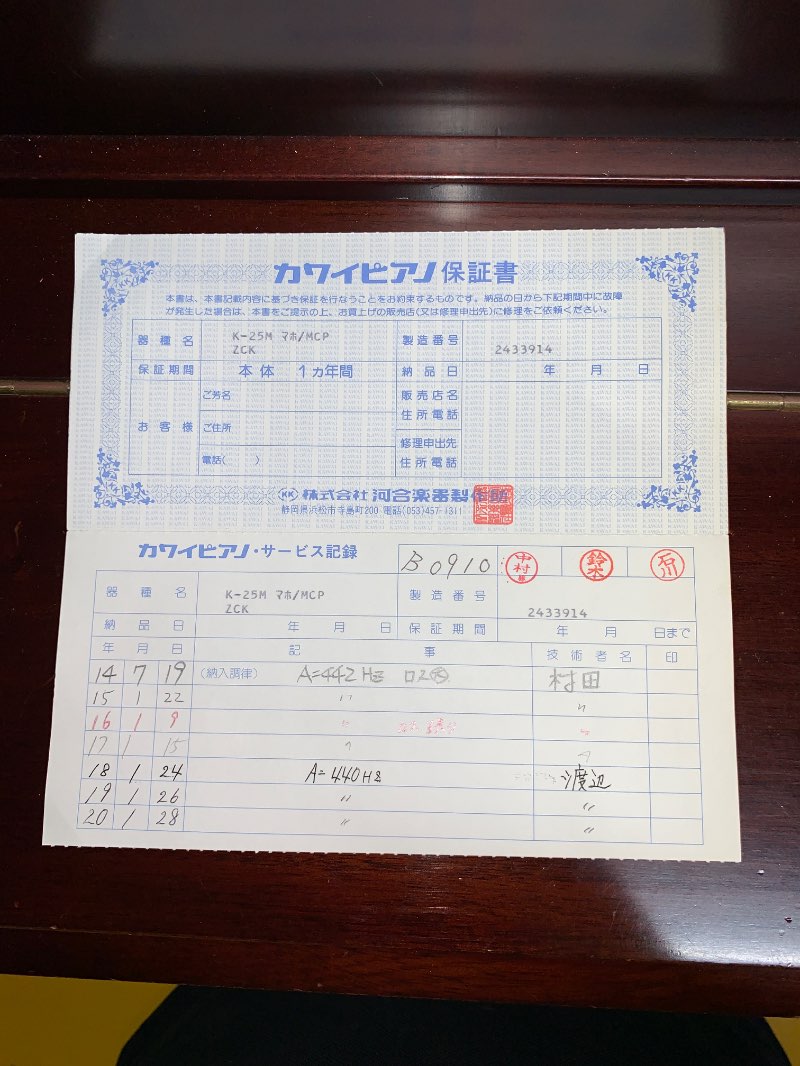 カワイピアノ 保証書
本書は、本書記載内容に基づき保証を行なうことをお約束するものです。納品の日から下記期間中に故障
が発生した場合は、本書をご提示の上、お買上げの販売店(又は修理申出先)に修理をご依頼ください。
器種名 K-25M マホ/MCP 製造番号
ZCK 2433914
保証期間 本体 1ヵ年間 納品日 年 月 日
お客様 ご芳名 販売店名
住所電話
ご住所
修理申出先
電話( ) 住所電話
株式会社 河合楽器製作所
静岡県浜松市寺島町200 電話(053)457-1311
カワイピアノ・サービス記録 B0910 中村 鈴木 石川
器種名 K-25M マホ/MCP 製造番号
ZCK 2433914
納品日 年 月 日 保証期間 年 月 日まで
年 月 日 記事 技術者名 印
14 7 19 (納入調律) A=442Hz 村田
15 1 22 〃 〃
16 1 9 〃 〃
17 1 15 〃 〃
18 1 24 A=440Hz 渡辺
19 1 26 〃 〃
20 1 28 〃 〃